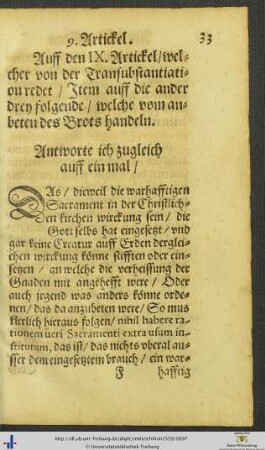 9. Artickel.
33
Auff den IX. Artickel/wel-
cher von der Transubstantiati-
on redet / Item auff die ander
drey folgende / welche vom an-
beten des Brots handeln.
Antworte ich zugleich
auff ein mal /
DAs / dieweil die warhafftigen
Sacrament in der Christlich-
en kirchen wirckung sein / die
Gott selbs hat eingesetzt / vnd
gar keine Creatur auff Erden derglei-
chen wirckung könne stifften oder ein-
setzen / an welche die verheissung der
Gnaden mit angehefft were / Oder
auch jrgend was anders könne orde-
nen / das da anzubeten were / So mus
klerlich hieraus folgen / nihil habere ra-
tionem ueri Sacramenti extra usum in-
stitutum, das ist / das nichts vberal au-
sser dem eingesetztem brauch / ein war-
F
hafftig
http://dl.ub.uni-freiburg.de/diglit/melanchthon1559/0097
© Universitätsbibliothek Freiburg
Baden-Württemberg